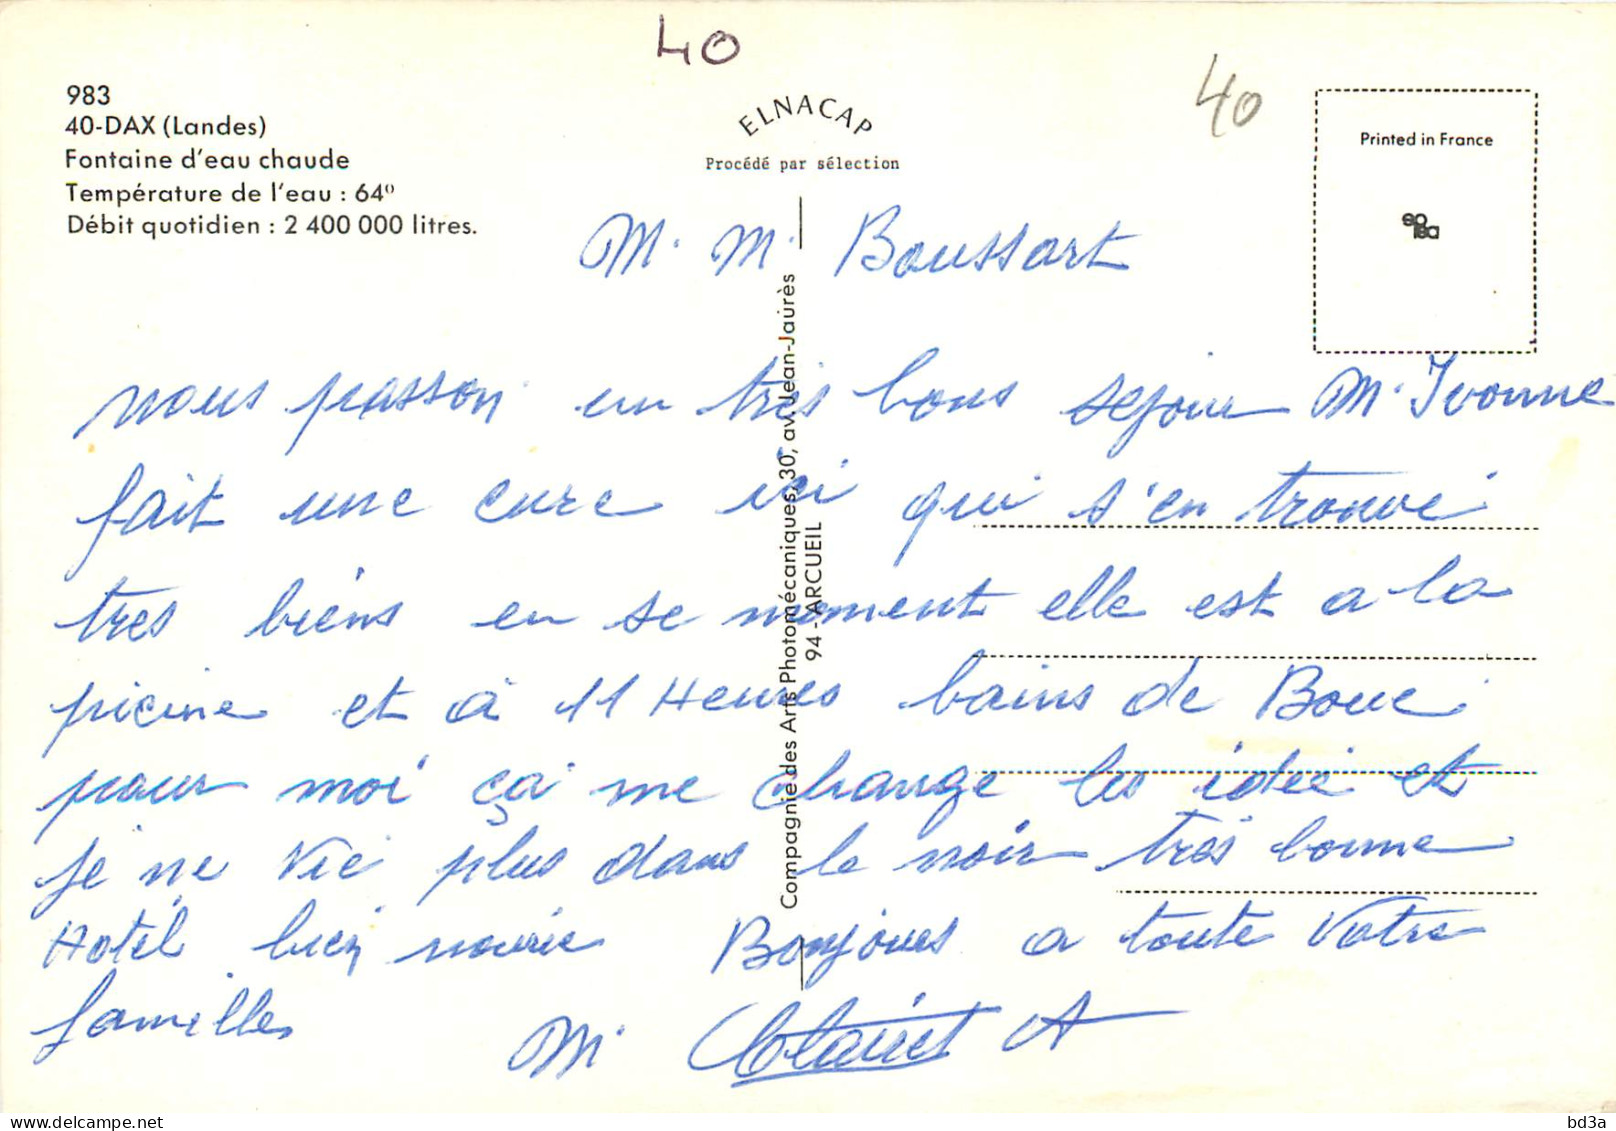 40
40
983
40-DAX (Landes)
Fontaine d'eau chaude
Température de l'eau : 64º
Débit quotidien : 2 400 000 litres.
ELNACAP
Procédé par sélection
Printed in France
Compagnie des Arts Photomécaniques, 30, av. Jean-Jaurès
94 - ARCUEIL
M. M. Boussart
nous passon un très bons sejour M. Yvonne
fait une cure ici qui s'en trouve
tres biens en se moment elle est a la
picine et à 11 Heures bains de Boue
pour moi ça me change les idée et
je ne vie plus dans le noir très bonne
Hotél bien nourie Bonjoues a toute Votre
familles
M. A
bd3a